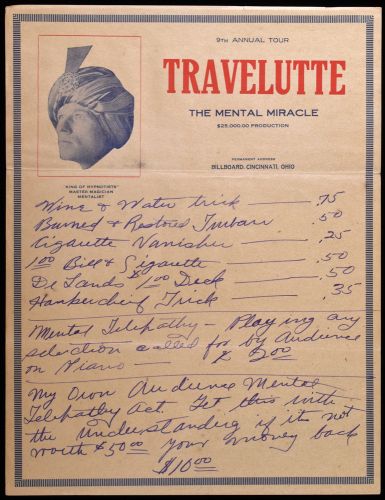 9TH ANNUAL TOUR
TRAVELUTTE
THE MENTAL MIRACLE
$25,000.00 PRODUCTION
PERMANENT ADDRESS
BILLBOARD, CINCINNATI, OHIO
"KING OF HYPNOTISTS"
MASTER MAGICIAN
MENTALIST
Wine & Water trick — .75
Burned & Restored Turban .50
Cigarette Vanisher — .25
1.00 Bill & Cigarette — .50
De Lands $1.00 Deck — .50
Hankerchief Trick — .35
Mental Telepathy - Playing any
selection called for by Audience
on Piano — $2.00
My Own Audience Mental
Telepathy Act. Get this with
the Understanding if its not
worth $50.00 your money back
$10.00